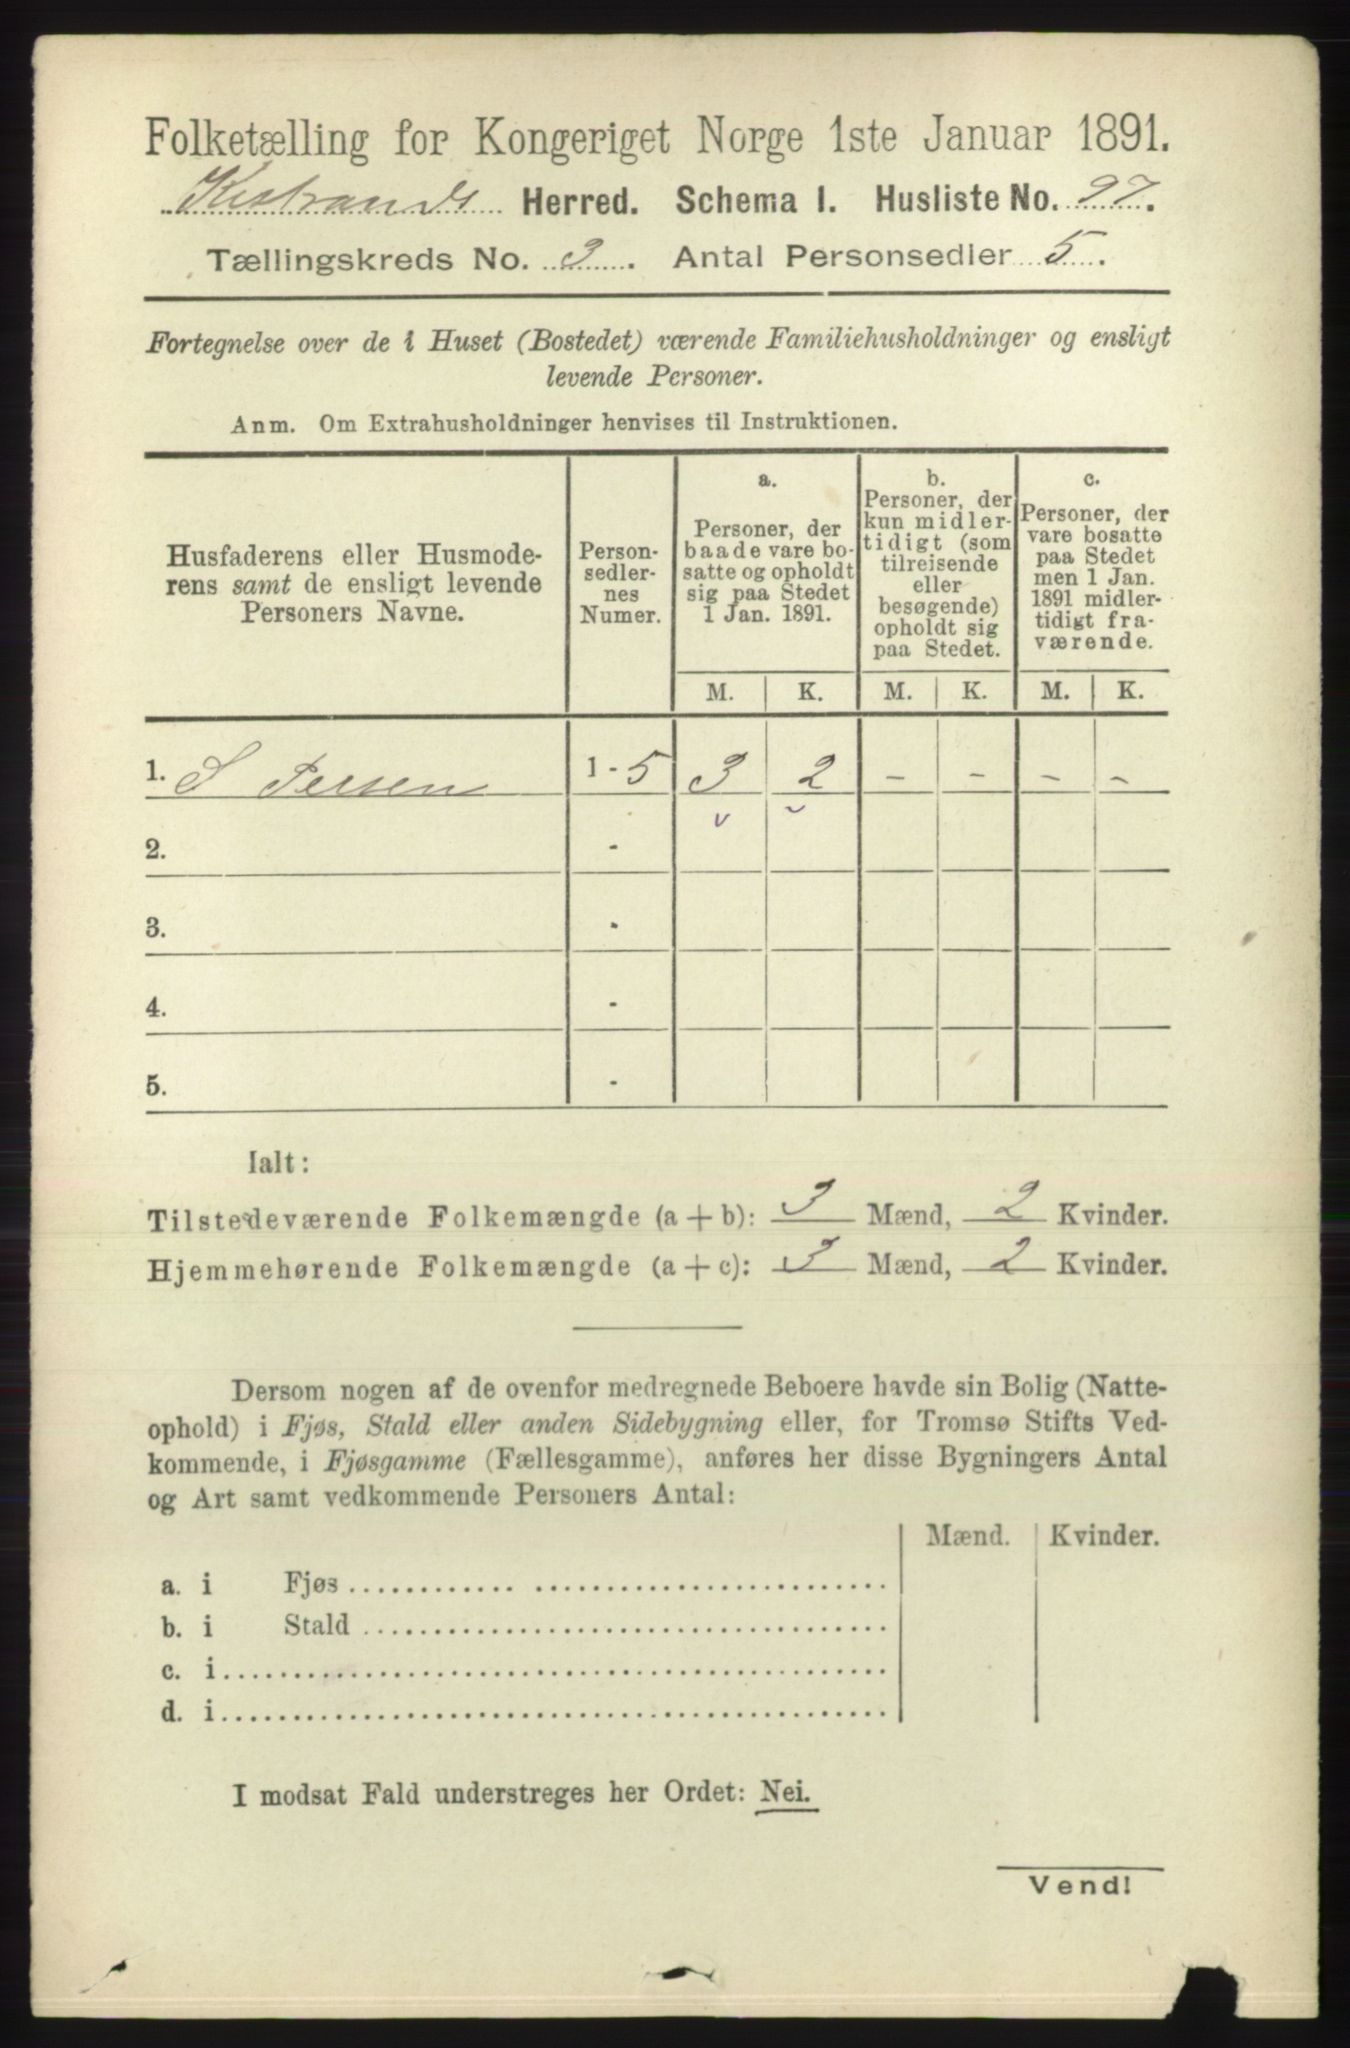 Folketælling for Kongeriget Norge 1ste Januar 1891.
Kistrands Herred. Schema I. Husliste No. 27.
Tællingskreds No. 3. Antal Personsedler 5.
Fortegnelse over de i Huset (Bostedet) værende Familiehusholdninger og ensligt
levende Personer.
Anm. Om Extrahusholdninger henvises til Instruktionen.
Husfaderens eller Husmode-
rens samt de ensligt levende
Personers Navne.
Person-
sedler-
nes
Numer.
a.
Personer, der
baade vare bo-
satte og opholdt
sig paa Stedet
1 Jan. 1891.
b.
Personer, der
kun midler-
tidigt (som
tilreisende
eller
besøgende)
opholdt sig
paa Stedet.
c.
Personer, der
vare bosatte
paa Stedet
men 1 Jan.
1891 midler-
tidigt fra-
værende.
M. K. M. K. M. K.
1. S Persen 1 - 5 3 2 - - - -
2. -
3. -
4. -
5. -
Ialt:
Tilstedeværende Folkemængde (a + b): 3 Mænd, 2 Kvinder.
Hjemmehørende Folkemængde (a + c): 3 Mænd, 2 Kvinder.
Dersom nogen af de ovenfor medregnede Beboere havde sin Bolig (Natte-
ophold) i Fjøs, Stald eller anden Sidebygning eller, for Tromsø Stifts Ved-
kommende, i Fjøsgamme (Fællesgamme), anføres her disse Bygningers Antal
og Art samt vedkommende Personers Antal:
Mænd. Kvinder.
a. i Fjøs
b. i Stald
c. i
d. i
I modsat Fald understreges her Ordet: Nei.
Vend!